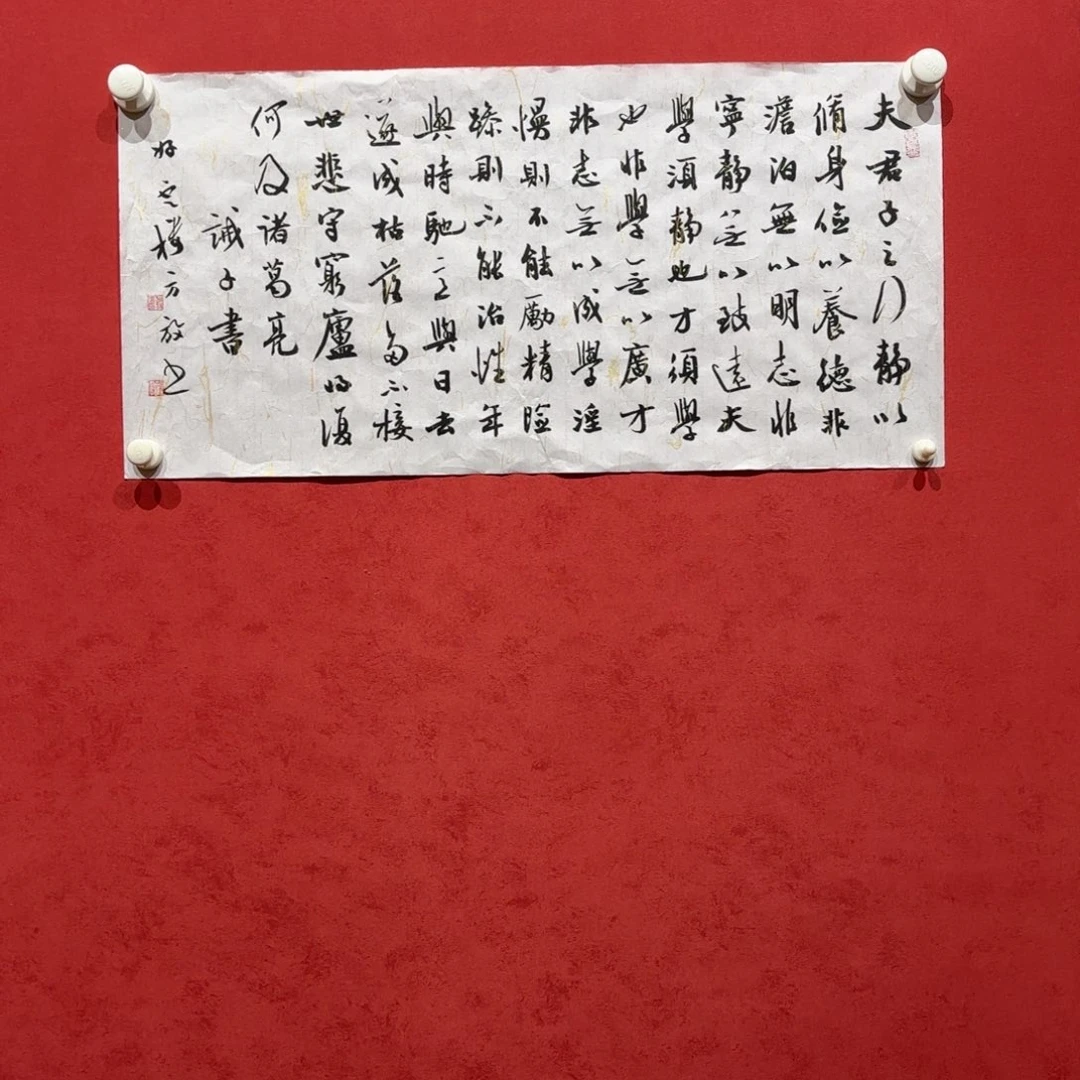 夫君子之行静以
脩身儉以養德非
澹泊無以明志非
寧静無以致遠夫
學須静也才須學
也非學無以廣才
非志無以成學淫
慢則不能勵精險
躁則不能治性年
與時馳意與日去
遂成枯落多不接
世悲守窮廬將復
何及諸葛亮
誡子書
方放书